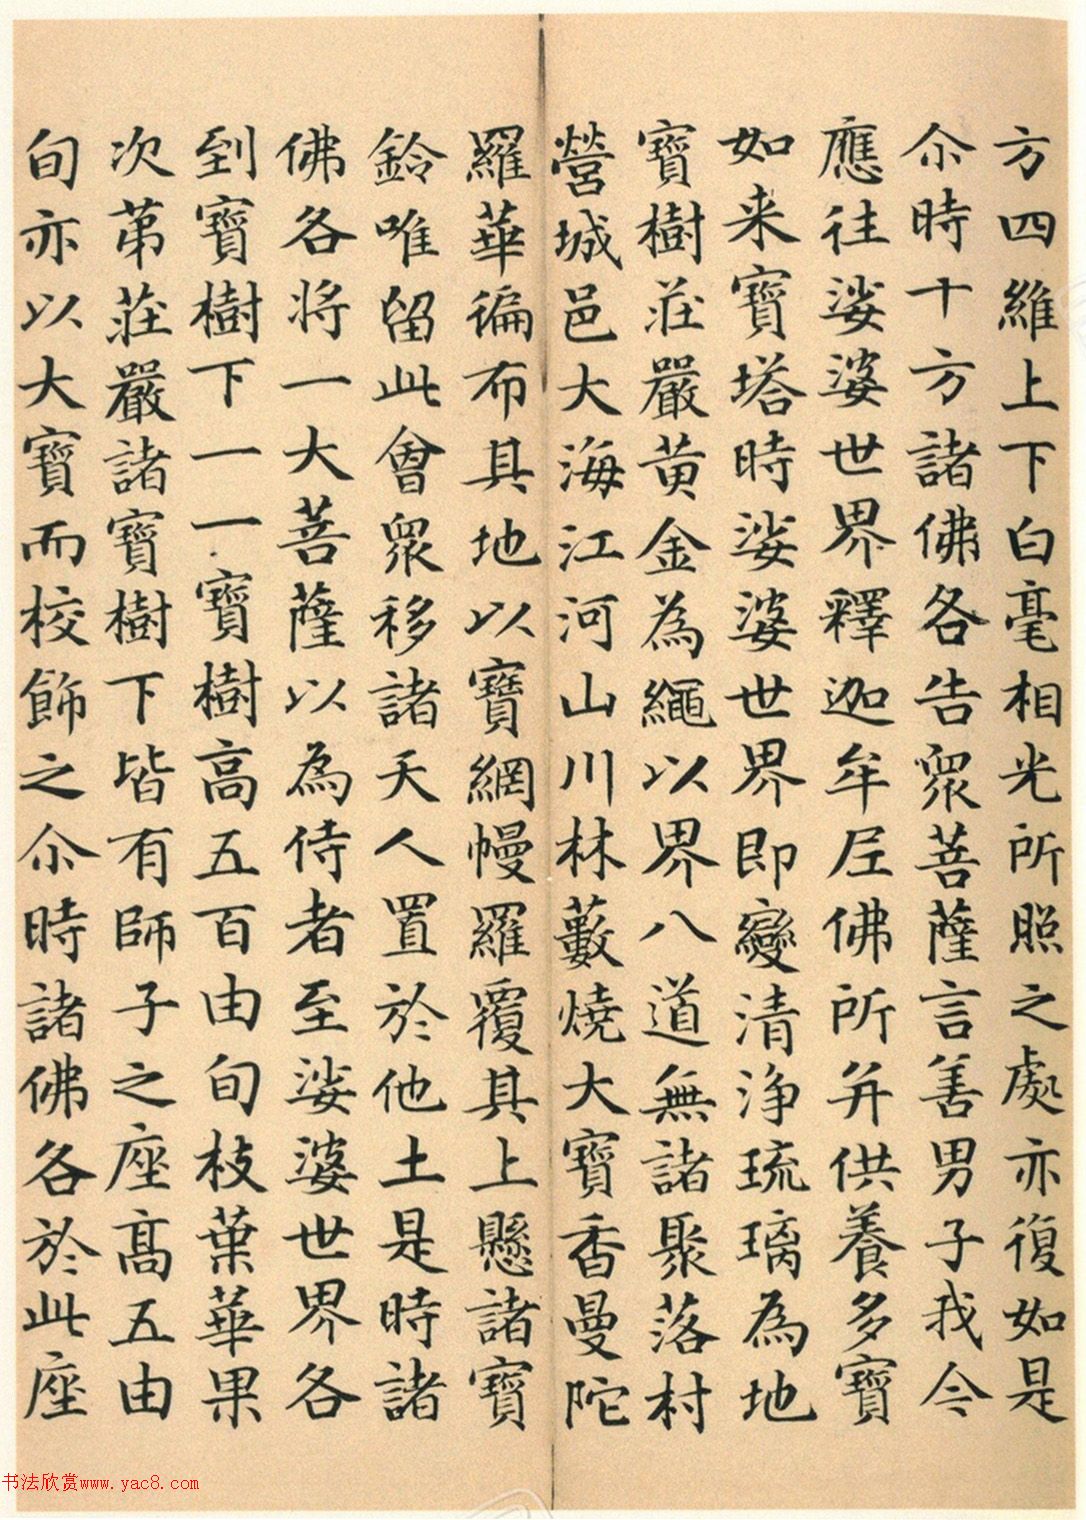 方四維上下白毫相光所照之處亦復如是
尒時十方諸佛各告眾菩薩言善男子我今
應往娑婆世界釋迦牟尼佛所并供養多寶
如来寶塔時娑婆世界即變清淨琉璃為地
寶樹莊嚴黄金為繩以界八道無諸聚落村
營城邑大海江河山川林藪燒大寶香曼陀
羅華徧布其地以寶網幔羅覆其上懸諸寶
鈴唯留此會眾移諸天人置於他土是時諸
佛各将一大菩薩以為侍者至娑婆世界各
到寶樹下一一寶樹高五百由旬枝葉華果
次苐莊嚴諸寶樹下皆有師子之座髙五由
旬亦以大寶而校飾之尒時諸佛各於此座
书法欣赏www.yac8.com